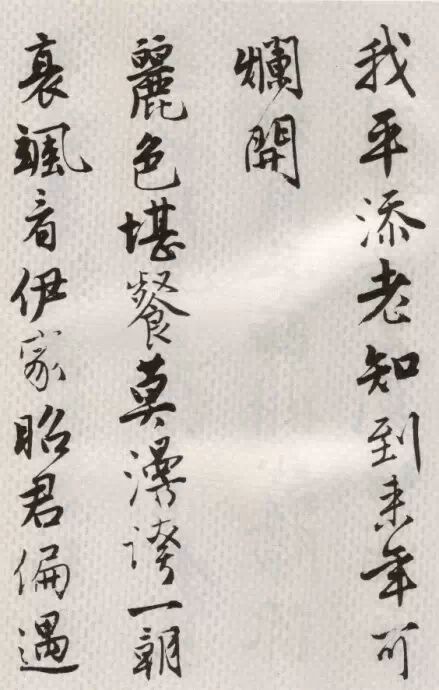 我平添老知到來年可
爛開
麗色堪餐莫漫誇一朝
衰颯看伊家昭君偏遇